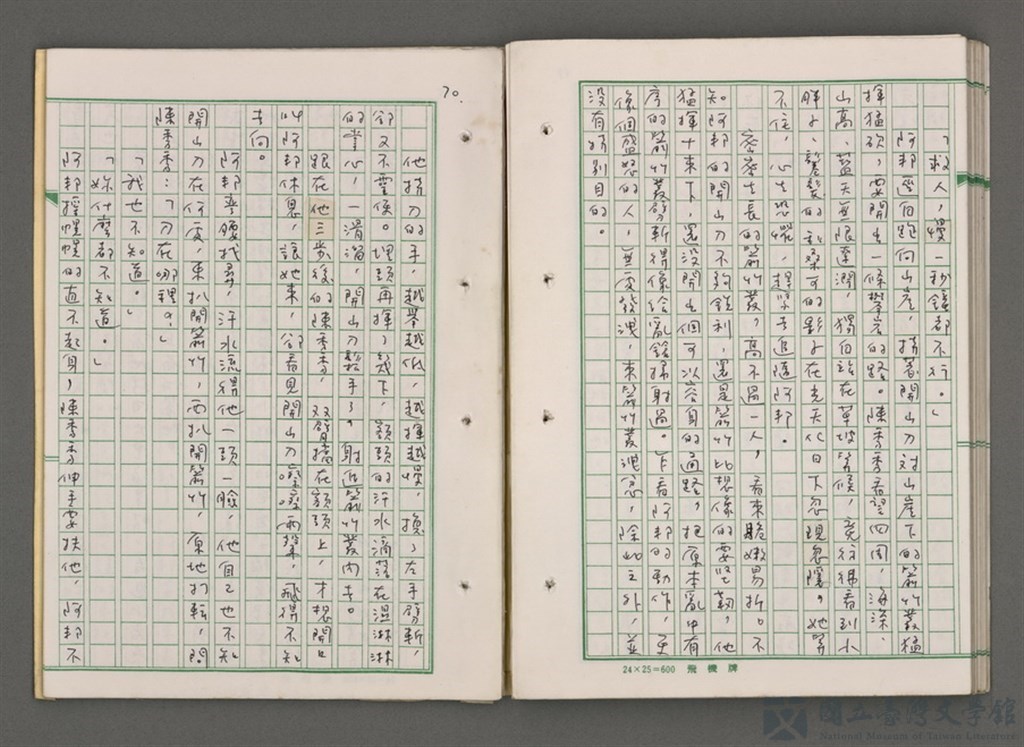 「救人，慢一秒鐘都不行。」
阿邦逕自跑向山崖，持著開山刀對山崖下的箭竹叢猛
揮猛砍，要開出一條攀岩的路。陳秀秀看望四周，海深、
山高、藍天無限遼濶，獨自站在草坡等候，竟彷彿看到小
胖子、鬈髮的
不住，心生恐懼，趕緊去追隨阿邦。
密密生長的箭竹叢，高不過一人，看來脆嫩易折。不
知阿邦的開山刀不夠鋒利，還是箭竹比想像的要堅韌，他
猛揮十來下，還沒開出個可以容身的通路，把原本亂中有
序的箭竹叢劈斬得像給亂鎗掃射過。乍看阿邦的動作，更
像個盛怒的人，無處發洩，來箭竹叢洩忿，除此之外，並
沒有特別目的。
70.
他持刀的手，越舉越低，越揮越慢，換了左手劈斬，
卻又不靈像。埋頭再揮了幾下，額頭的汗水滴落在濕淋淋
的掌心，一滑溜，開山刀鬆手了。射進箭竹叢內去。
跟在他三步後的陳秀秀，双臂擋在額頭上，才想開口
叫阿邦休息，讓她來，卻看見開山刀嚓嚓兩聲，飛得不知
去向。
阿邦彎腰找尋，汗水流得他一頭一臉，他自己也不知
開山刀在何處，東扒開箭竹，西扒開箭竹，原地打轉，問
陳秀秀：「刀在哪裡？」
「我也不知道。」
「妳什麼都不知道。」
阿邦搖幌幌的直不起身，陳秀秀伸手要扶他，阿邦不
24×25=600 飛機牌
國立臺灣文學館
National Museum of Taiwan Literature